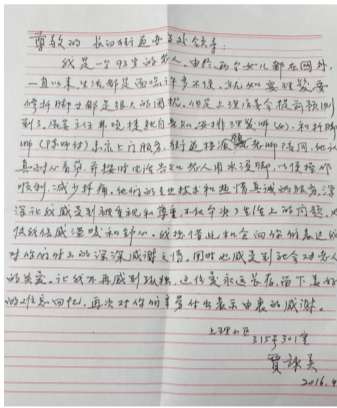 尊敬的 长白街道办事处领导：
我是一个93岁的老人，由于两个女儿都在国外，
一直以来，生活都是面临许多不便，就如要理发，要
修折脚廿都是很大的困扰，但是上理居委会提前预约
到了，居委主任 提起自告知，安排理发师(女)，和扦脚
师(陈师付)来家上门服务，街道 老师陪同，他认
真的 ，并按时电话告知老人用水浸脚，以便操作
顺利，减少疼痛，他们的专业技术和热情真诚的服务，深
深让我感受到被重视和尊重，不仅解决了生活上的问题，也
使我倍感温暖和舒心，我想借此机会向你们表达我
对你们的 深深感谢之情，同时也感受到社会对老人
的关爱。让我不再感到孤独，这份爱永远长存，留下美好
的 回忆，再次对你们辛苦付出表示由衷的感谢。
上理小区
315号301室
贾詠美
2016.4